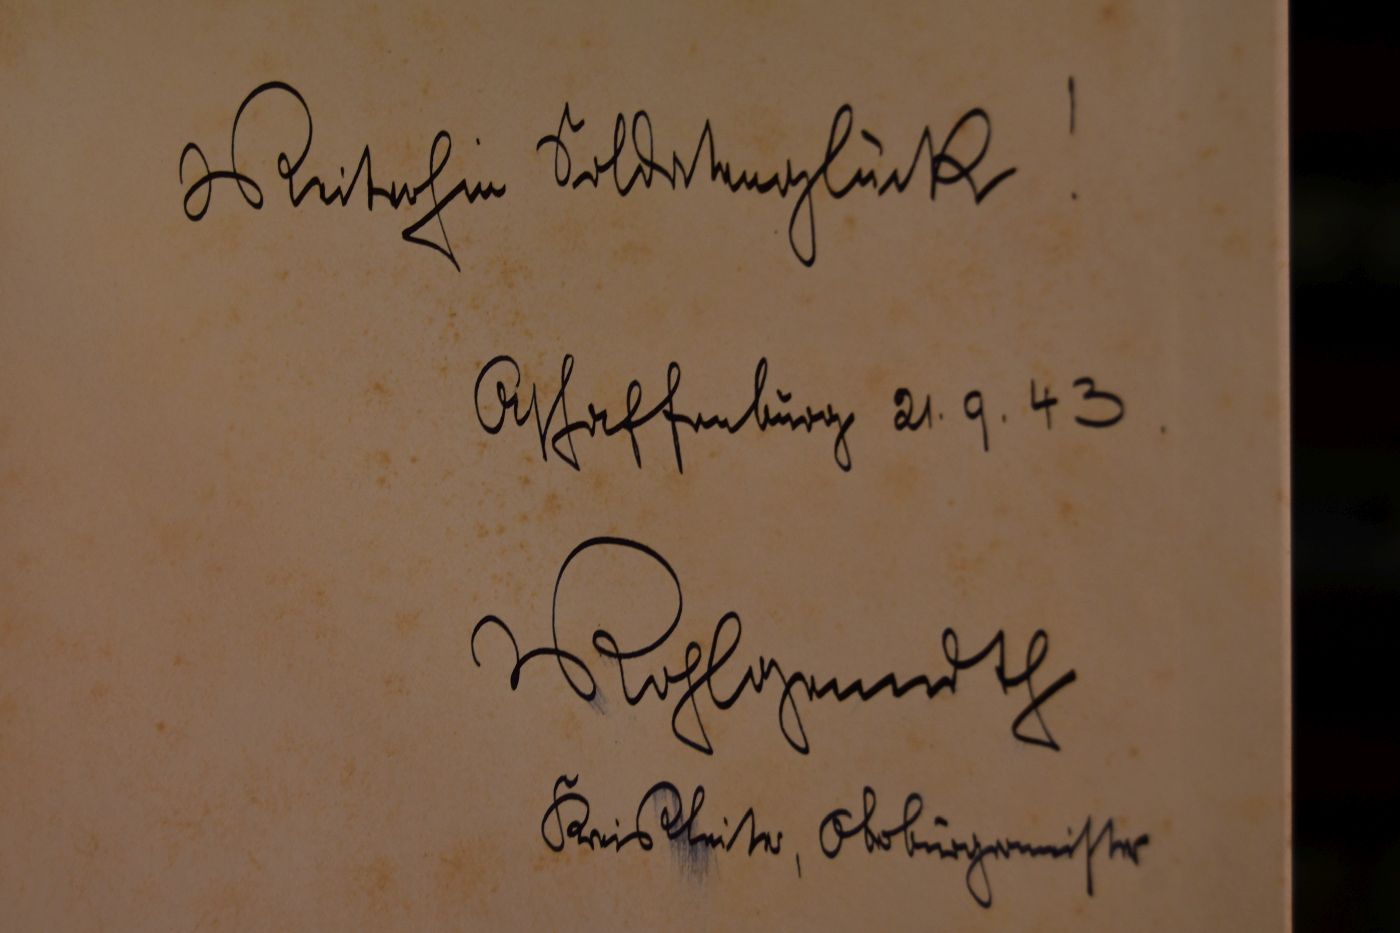 Weiterhin Soldatenglück !
Aschaffenburg 21.9.43.
Wohlgemuth
Kreisleiter, Oberbürgermeister